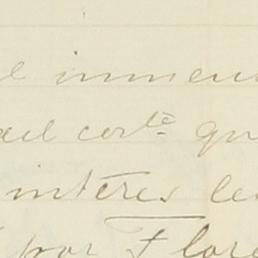 l inmen
ail corte qu
interes le
por Flore